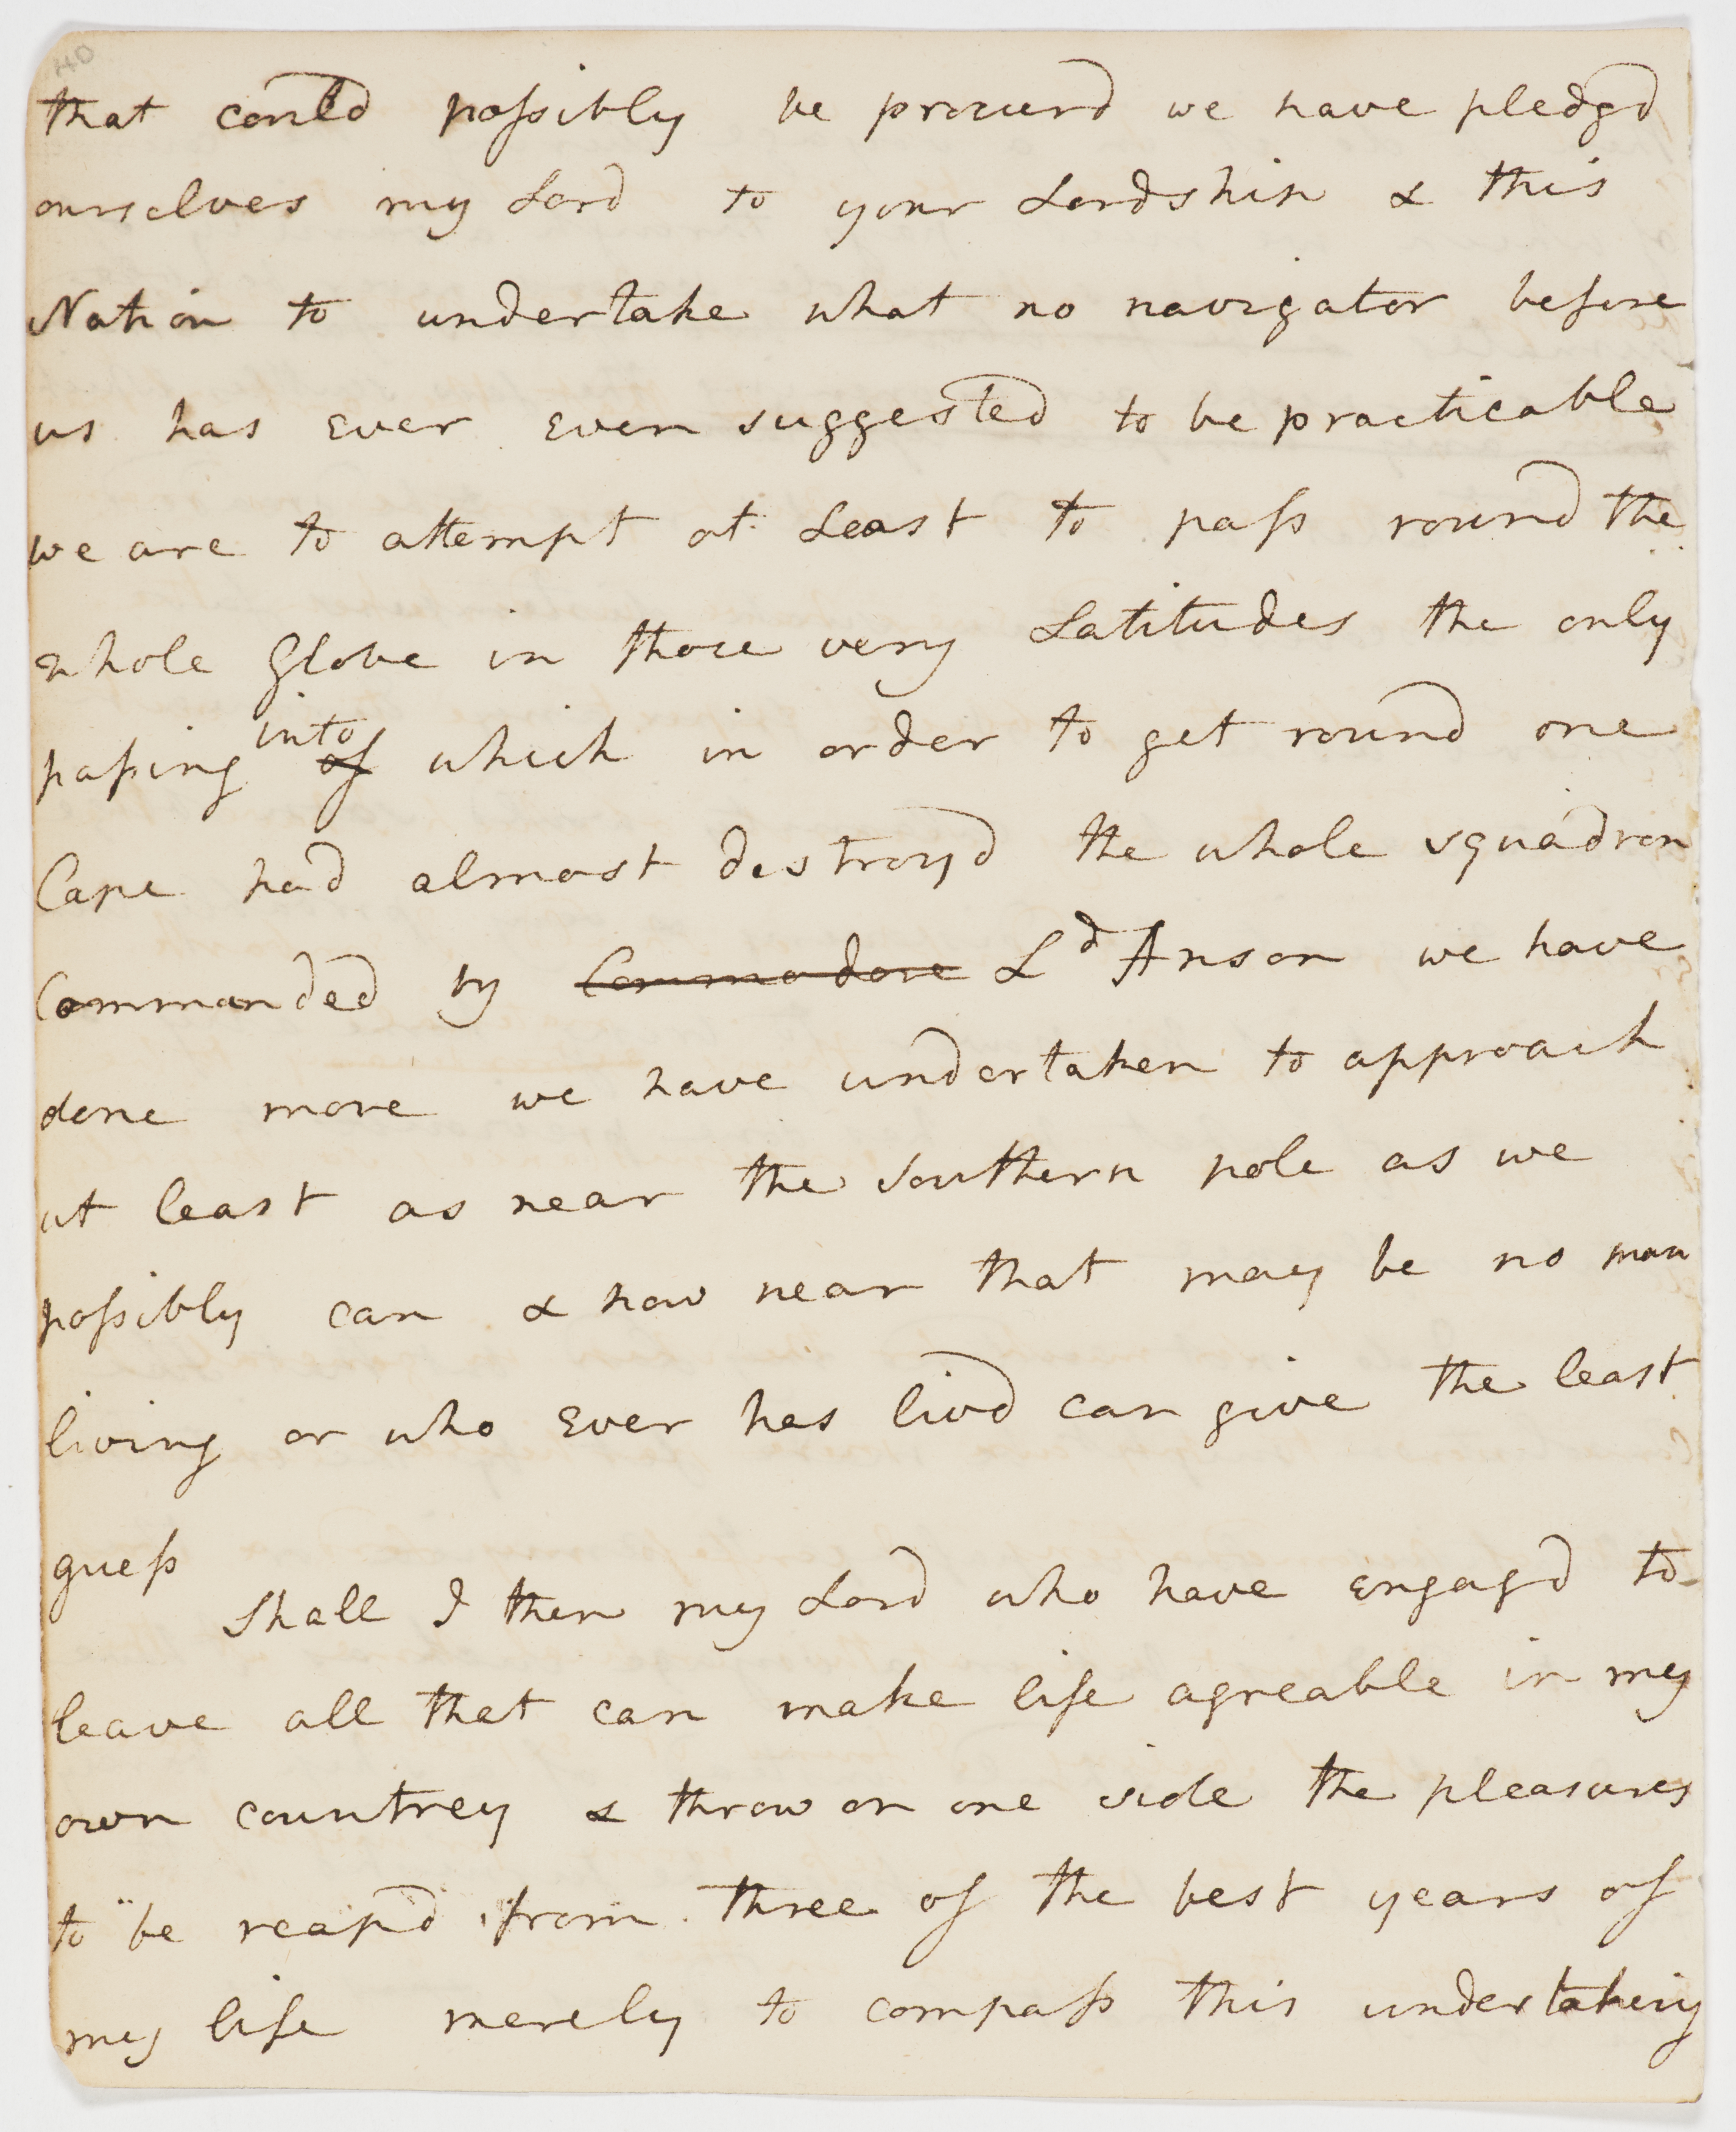 that could possibly be procurd we have pledgd
ourselves my Lord to your Lordship & this
Nation to undertake what no navigator before
us has ever even suggested to be practicable
we are to attempt at Least to pass round the
whole Globe in those very Latitudes the only
passing into ~~of~~ which in order to get round one
Cape had almost destroyd the whole squadron
Commanded by ~~Commodore~~ Ld Anson we have
done more we have undertaken to approach
at least as near the Southern pole as we
possibly can & how near that may be no man
living or who ever has livd can give the least
guess
Shall I then my Lord who have engagd to
leave all that can make life agreable in my
own countrey & throw on one side the pleasures
to be reapd from three of the best years of
my life merely to compass this undertaking